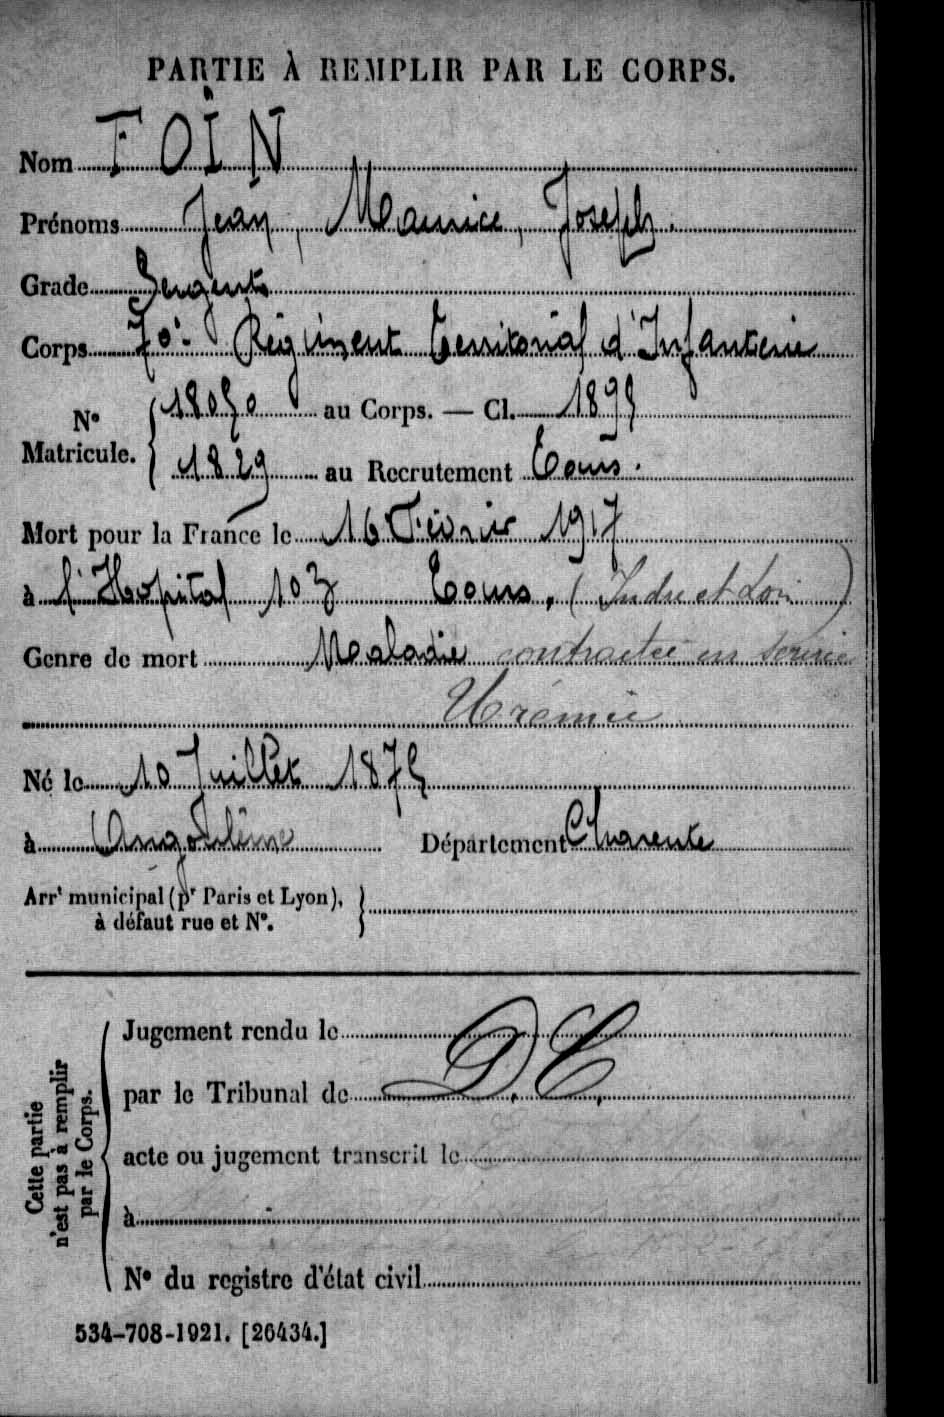 PARTIE À REMPLIR PAR LE CORPS.
Nom FOÏN
Prénoms Jean, Maurice, Joseph.
Grade Sergent
Corps 70e Régiment Territorial d'Infanterie
No Matricule. { 18050 au Corps. — Cl. 1895
1829 au Recrutement Tours.
Mort pour la France le 16 Février 1917
à l'Hopital 103 Tours. (Indre et Loire)
Genre de mort Maladie contractée en service
Urémie
Né le 10 Juillet 1875
à Angoulême Département Charente
Arrt municipal (pr Paris et Lyon), à défaut rue et No. }
Cette partie n'est pas à remplir par le Corps.
Jugement rendu le
D. C.
par le Tribunal de
acte ou jugement transcrit le
à
No du registre d'état civil
534-708-1921. [26434.]